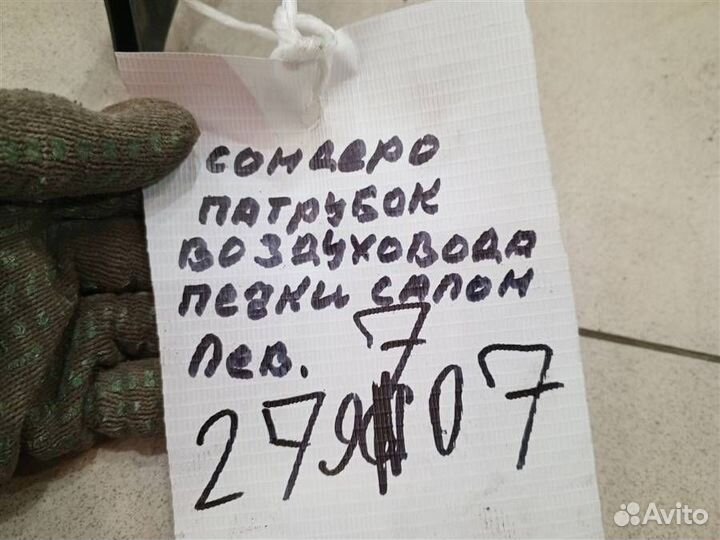 сондеро
патрубок
воздуховода
печки салон
лев.
279707
Avito